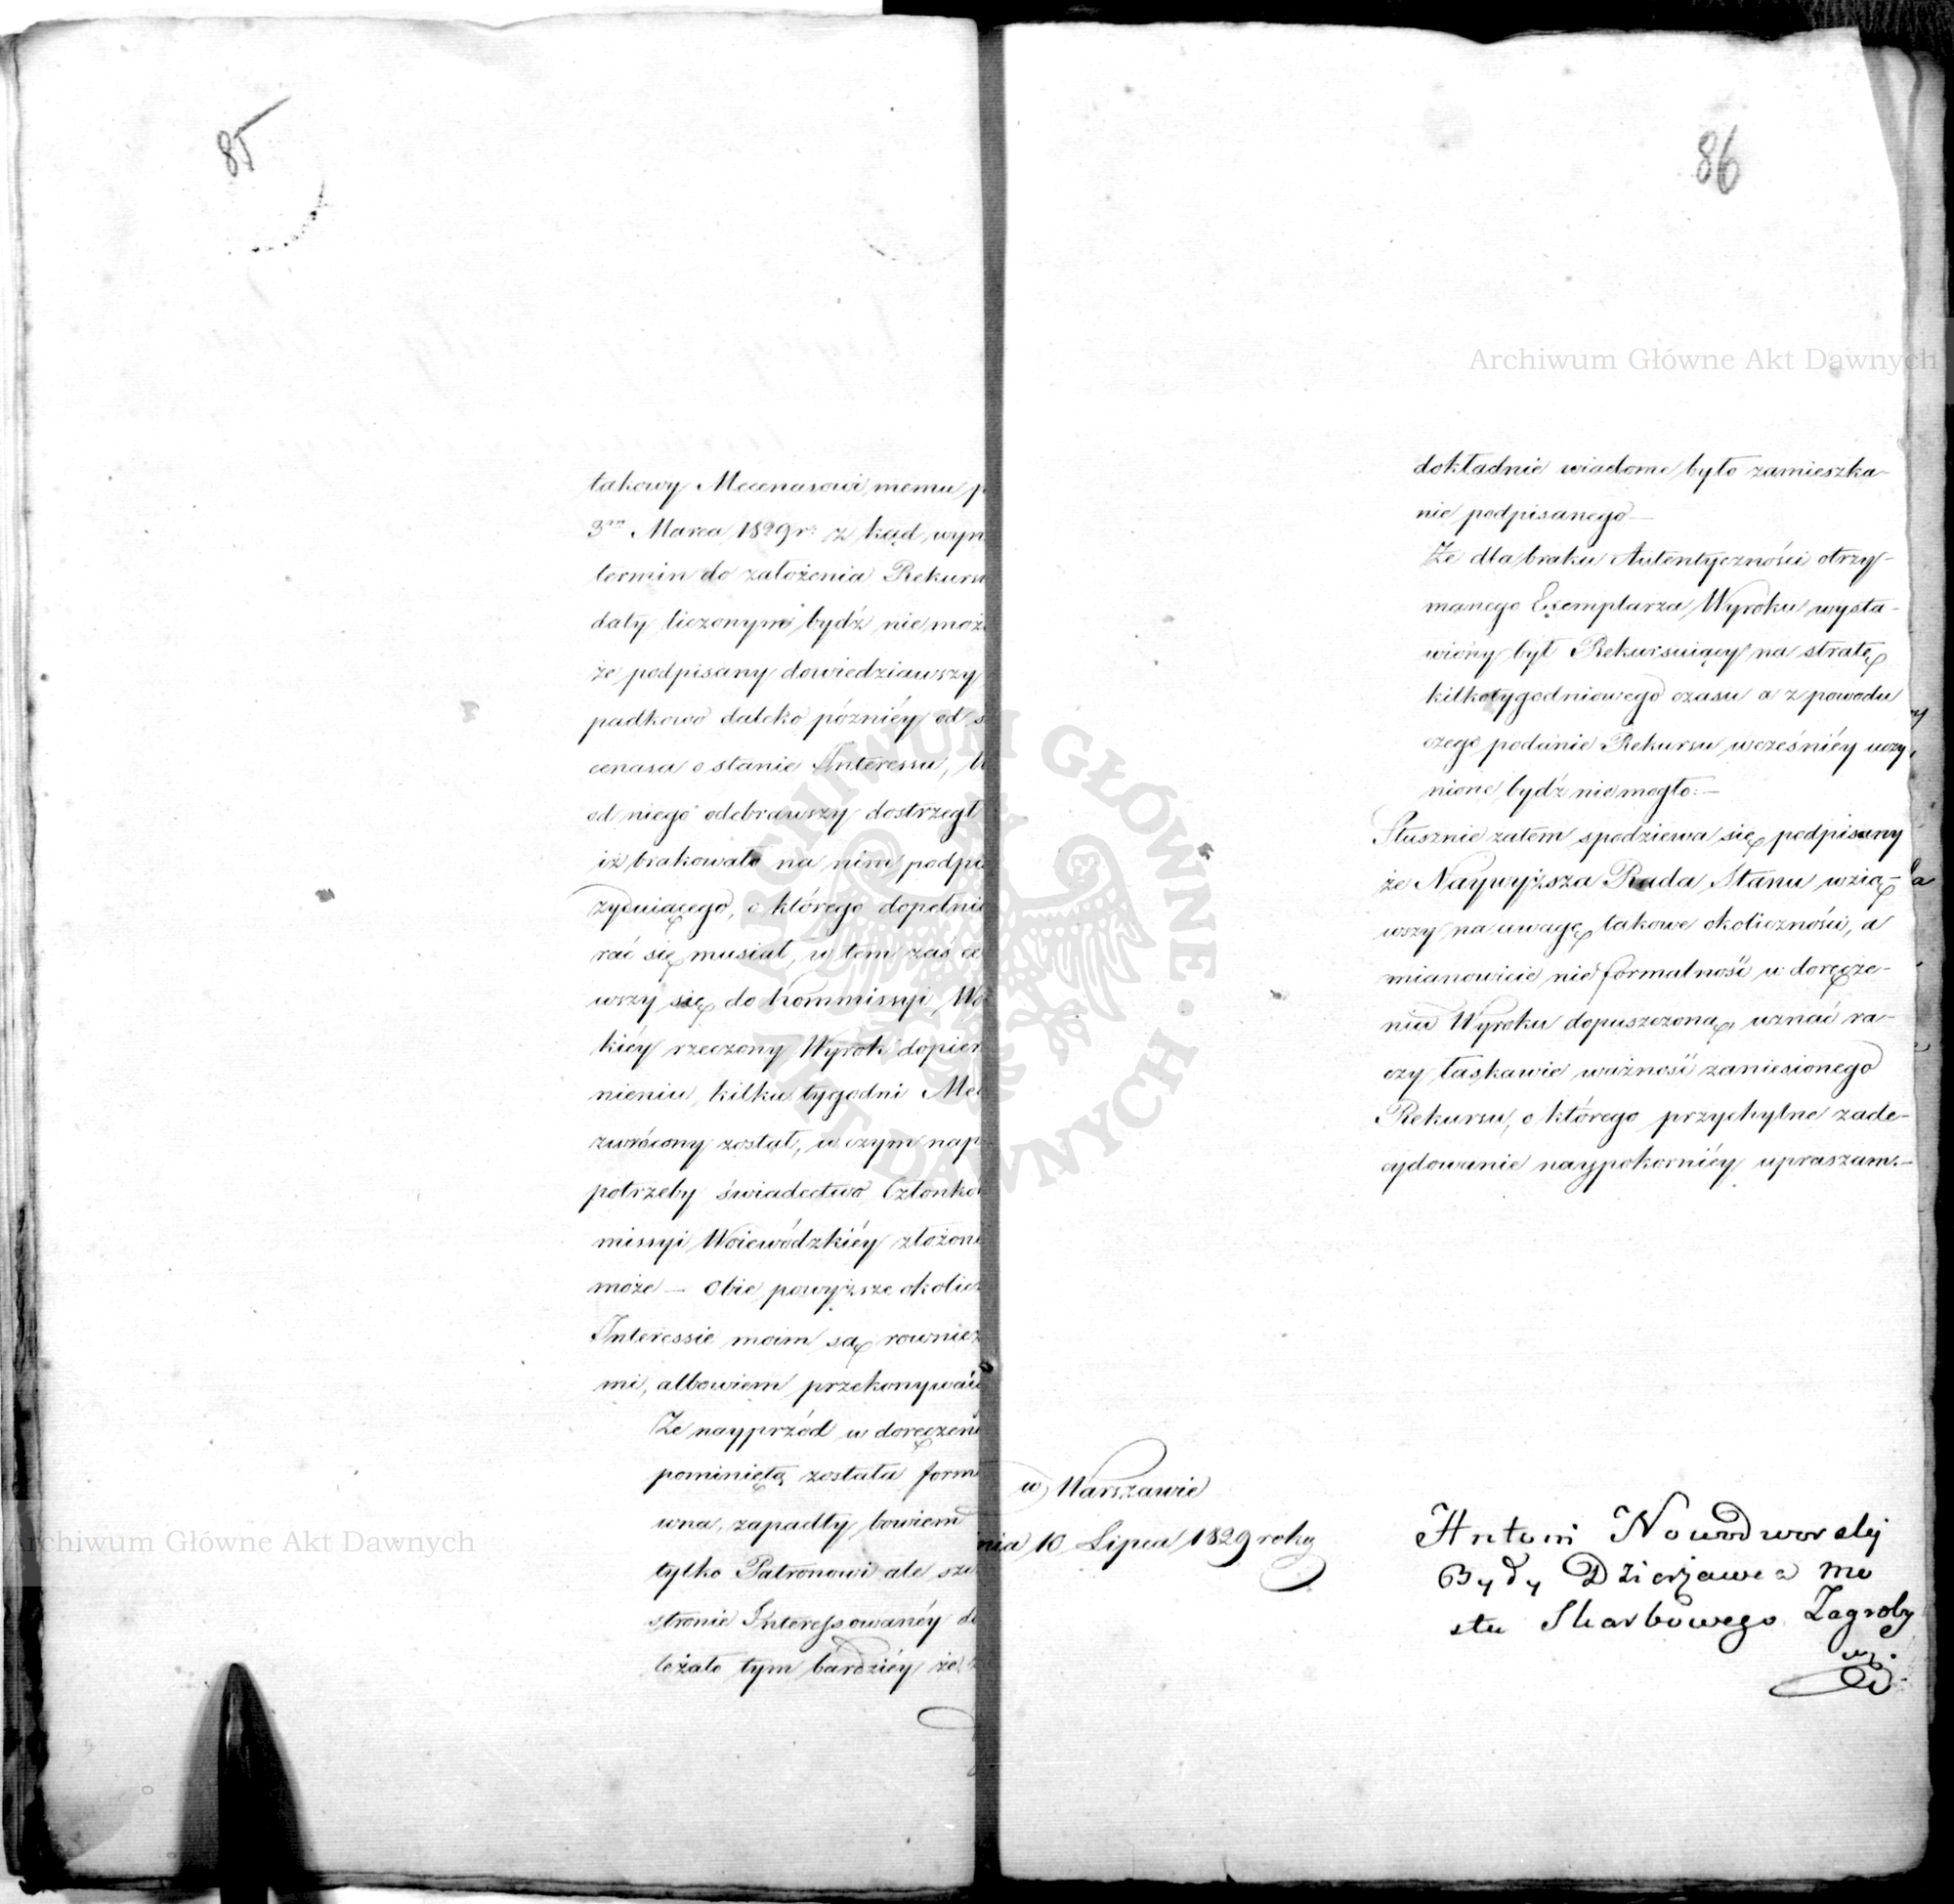 85
takowy Mecenasowi memu p
3go Marca 1829 r: z kąd wyn
termin do założenia Rekurs
daty liczonym bydź nie moż
że podpisany dowiedziawszy
padkowo daleko późniéy od s
cenasa o stanie Interessu,
od niego odebrawszy dostrzegł
iż brakowało na nim podpi
zyduiącego, o którego dopełnie
rać się musiał, w tem zaś ce
wszy się do Kommissyi Wo
kiéy rzeczony Wyrok dopier
nieniu kilku tygodni Me
zwrócony został, w czym nap
potrzeby świadectwo Członko
missyi Woiewódzkiéy złożon
może — Obie powyższe okolicz
Interessie moim są rownież
mi, albowiem przekonywai
Że nayprzód w doręczeni
pominiętą została form
wna, zapadły bowiem
tylko Patronowi ale sz
stronie Interessowanéy d
leżało tym bardziéy że
86
dokładnie wiadome było zamieszka-
nie podpisanego —
Że dla braku Autentyczności otrzy-
manego Exemplarza Wyroku wysta-
wiony był Rekursuiący na stratę
kilkotygodniowego czasu a z powodu
czego podanie Rekursu wcześniéy uczy
nione bydź nie mogło: —
Słusznie zatem spodziewa się podpisany
że Naywyższa Rada Stanu wzią-
wszy na uwagę takowe okoliczności, a
mianowicie nie formalność w doręcze-
niu Wyroku dopuszczoną, uznać ra-
czy łaskawie ważność zaniesionego
Rekursu, o którego przychylne zade-
cydowanie naypokorniéy upraszam. —
w Warszawie
nia 10 Lipca 1829 roku
Antoni Nowodworski
Były Dzierżawca Mo
stu Skarbowego Zagroby
Archiwum Główne Akt Dawnych
Archiwum Główne Akt Dawnych
ARCHIWUM GŁÓWNE AKT DAWNYCH